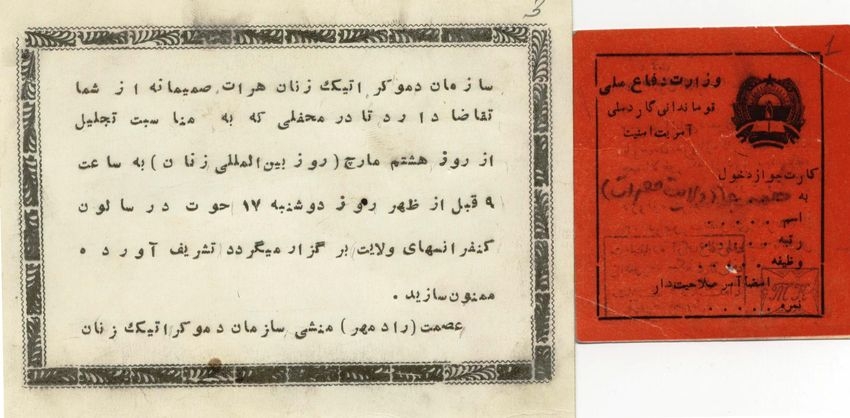 3
سازمان دموکراتیک زنان هرات صمیمانه از شما
تقاضا دارد تا در محفلی که به مناسبت تجلیل
از روز هشتم مارچ (روز بین‌المللی زنان) به ساعت
۹ قبل از ظهر روز دوشنبه ۱۷ حوت در سالون
کنفرانسهای ولایت برگزار میگردد تشریف آورده
ممنون سازید.
عصمت (رادمهر) منشی سازمان دموکراتیک زنان
1
وزارت دفاع ملی
قوماندانی گارد ملی
آمریت امنیت
کارت جواز دخول
به همه جا (ولایت هرات)
اسم . . . . .
رتبه . . . . .
وظیفه . . . . .
امضا آمر صلاحیت دار
نمره . . . . .